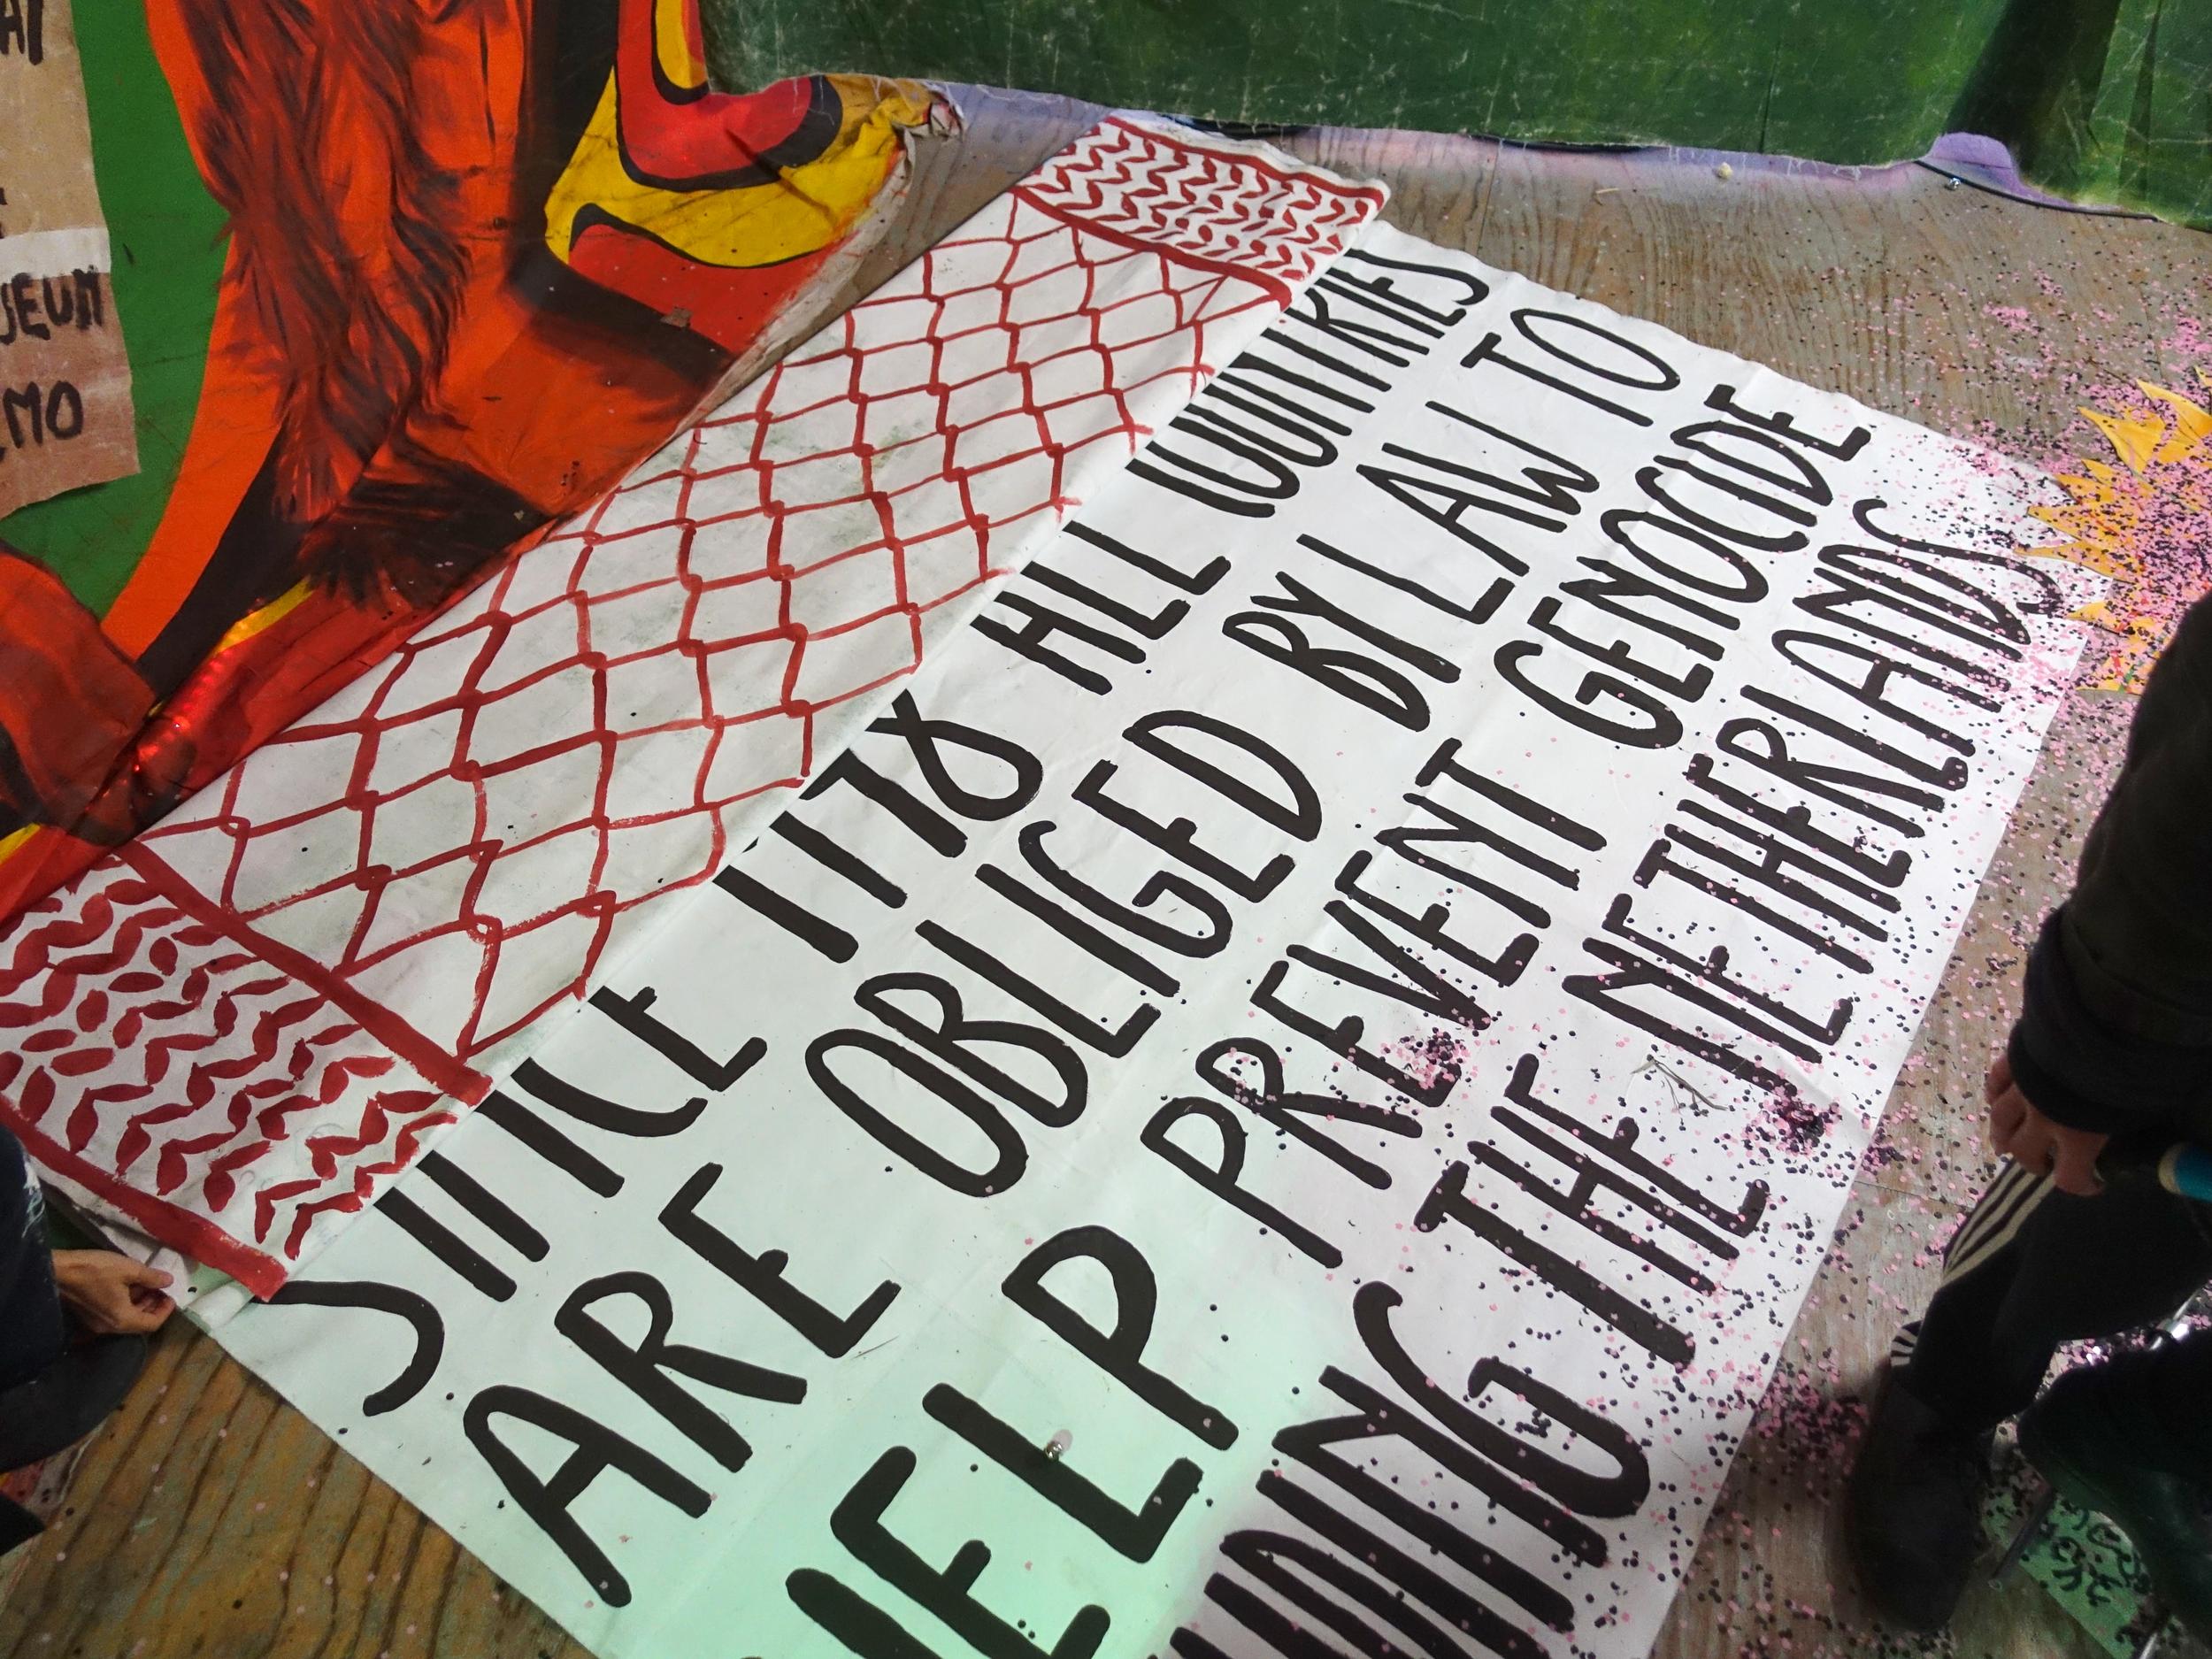 EUM
MO
SINCE 1948 ALL COUNTRIES
ARE OBLIGED BY LAW TO
HELP PREVENT GENOCIDE
UDING THE NETHERLANDS